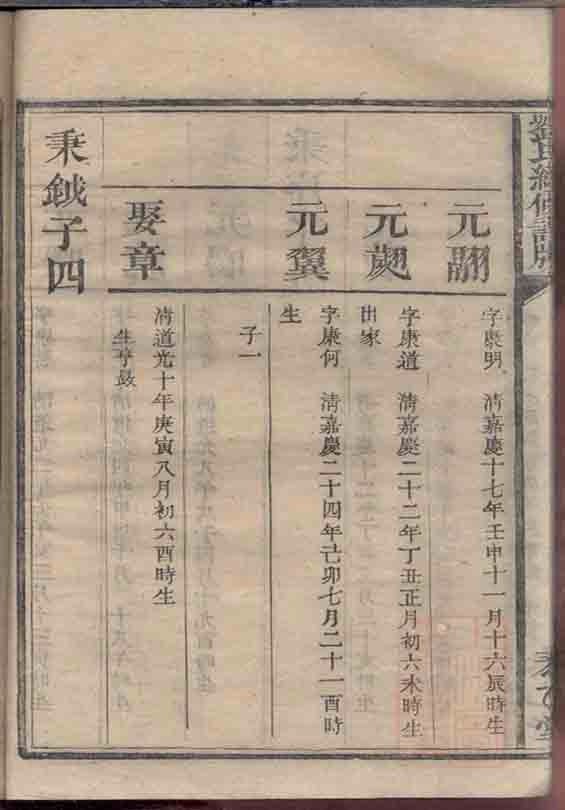 劉氏續修譜牒
元翮
字康明　清嘉慶十七年壬申十一月十六辰時生
元翽
字康道　清嘉慶二十二年丁丑正月初六未時生
出家
元翼
字康何　清嘉慶二十四年己卯七月二十一酉時
生
子一
娶章
清道光十年庚寅八月初六酉時生
生亨
秉鉞子四